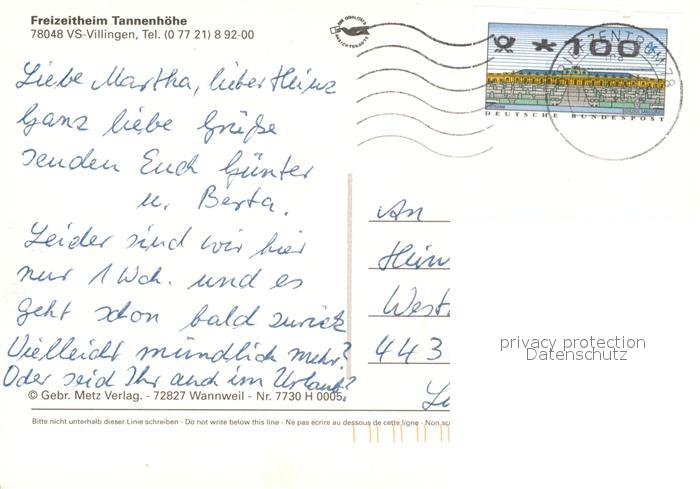 Freizeitheim Tannenhöhe
78048 VS-Villingen, Tel. (0 77 21) 8 92-00
*100
DEUTSCHE BUNDESPOST
Liebe Martha, lieber Heinz
Ganz liebe Grüße
senden Euch Günter
u. Berta.
Leider sind wir hier
nur 1 Woh. und es
geht schon bald zurück
Vielleicht mündlich mehr?
Oder seid Ihr auch im Urlaub?
An
Hein
West
443
privacy protection
Datenschutz
© Gebr. Metz Verlag. - 72827 Wannweil - Nr. 7730 H 0005
Bitte nicht unterhalb dieser Linie schreiben - Do not write below this line - Ne pas écrire au dessous de cette ligne - Non sc